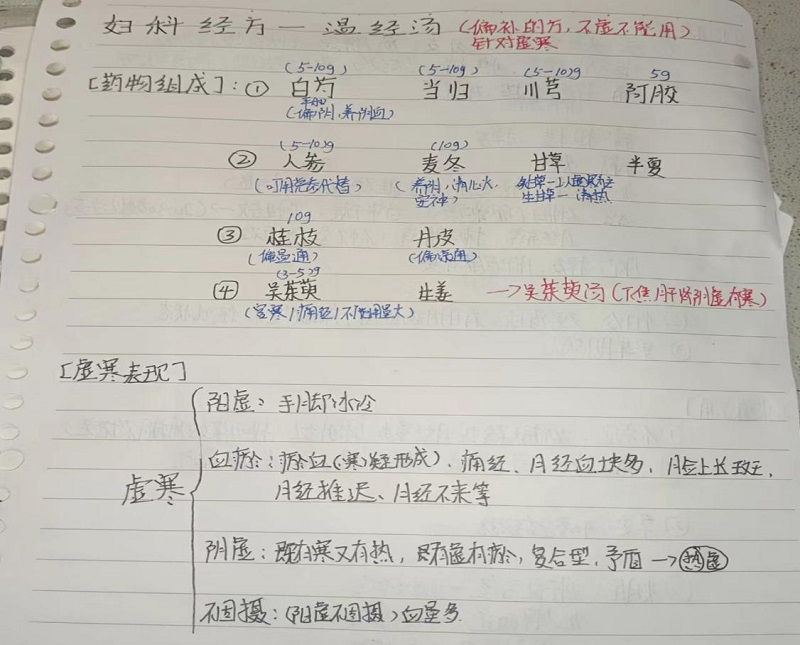 妇科经方一温经汤(偏补的方,不虚不能用)
针对虚寒
(5-10g) (5-10g) (5-10)g 5g
[药物组成]:① 白芍 当归 川芎 阿胶
(偏阴,养阴血)
(5-10)g (10g)
② 人参 麦冬 甘草 半夏
(可用党参代替) (养阴,清心火,
安神) 生甘草—清热
10g
③ 桂枝 丹皮
(偏温通) (偏凉通)
(3-5)g
④ 吴茱萸 生姜 →吴茱萸汤(下焦肝肾阳虚有寒)
(宫寒/痛经/不能用量大)
[虚寒表现]
阳虚:手脚冰冷
血瘀:瘀血(寒凝形成)、痛经、月经血块多、脸上长斑、
虚寒
月经推迟、月经不来等
阴虚:既有寒又有热,既有虚有瘀,复合型,矛盾→
不固摄:(阳虚不固摄)血量多